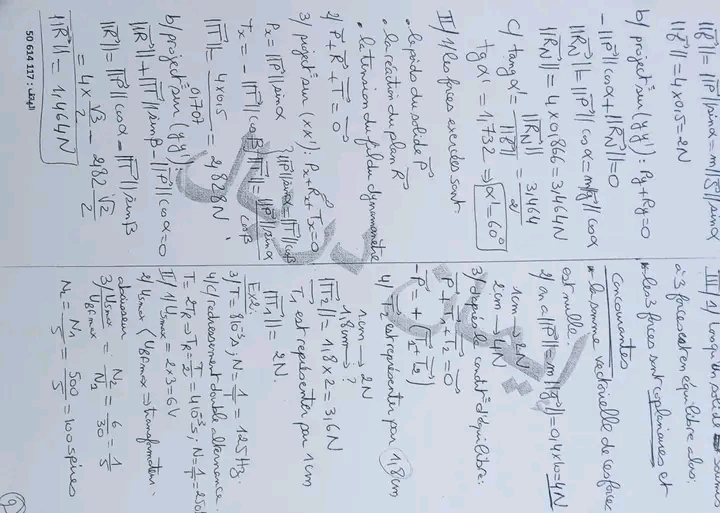 ||f|| = ||P|| sinα = m||g|| sinα
||f|| = 4×0,5 = 2N
b/ project° sur (yy'): Py + Ry = 0
- ||P|| cosα + ||RN|| = 0
||RN|| = ||P|| cosα = m||g|| cosα
||RN|| = 4 × 0,866 = 3,464N
c/ tang α' = ||RN|| / ||f|| = 3,464 / 2
tg α' = 1,732 ⇒ α' = 60°
II/ 1/ les forces exercées sont:
• le poids du solide P
• la réaction du plan R
• la tension du fil du dynamomètre
2/ P + R + T = 0
3/ project° sur (xx'): Px + Rx + Tx = 0
Px = ||P|| sinα
Tx = - ||T|| cosβ
||P|| sinα = ||T|| cosβ
||T|| = ||P|| sinα / cosβ
||T|| = 4×0,5 / 0,707 = 2,828N
b/ project° sur (yy'):
||R|| + ||T|| sinβ - ||P|| cosα = 0
||R|| = ||P|| cosα - ||T|| sinβ
= 4 × √3/2 - 2,82 √2/2
||R|| = 1,464N
الهاتف: 117 614 50
III/ 1/ Lorsqu'un solide soumis
à 3 forces est en équilibre alors:
• les 3 forces sont coplanaires et
concourantes
• la somme vectorielle de ces forces
est nulle.
2/ on a ||P|| = m||g|| = 0,4×10 = 4N
1cm → 2N
2cm → 4N
3/ d'après la condit° d'équilibre:
P + T1 + T2 = 0
- P = + (T1 + T2)
4/ T2 est représenter par 1,8cm
1cm → 2N
1,8cm → ?
||T2|| = 1,8 × 2 = 3,6N
T1 est représenter par 1cm
||T1|| = 2N.
Ex2:
3/ T = 8 10⁻³s; N = 1/T = 125Hz.
4/ c/ redressement double alternance.
T = 2TR ⇒ TR = T/2 = 4 10⁻³s; N = 1/T = 250
II/ 1/ Usmax = 2×3 = 6V
2/ Usmax < UBFmax ⇒ transformateur
abaisseur
3/ Usmax / UBFmax = N2 / N1 = 6/30 = 1/5
N2 = N1/5 = 500/5 = 100 spires